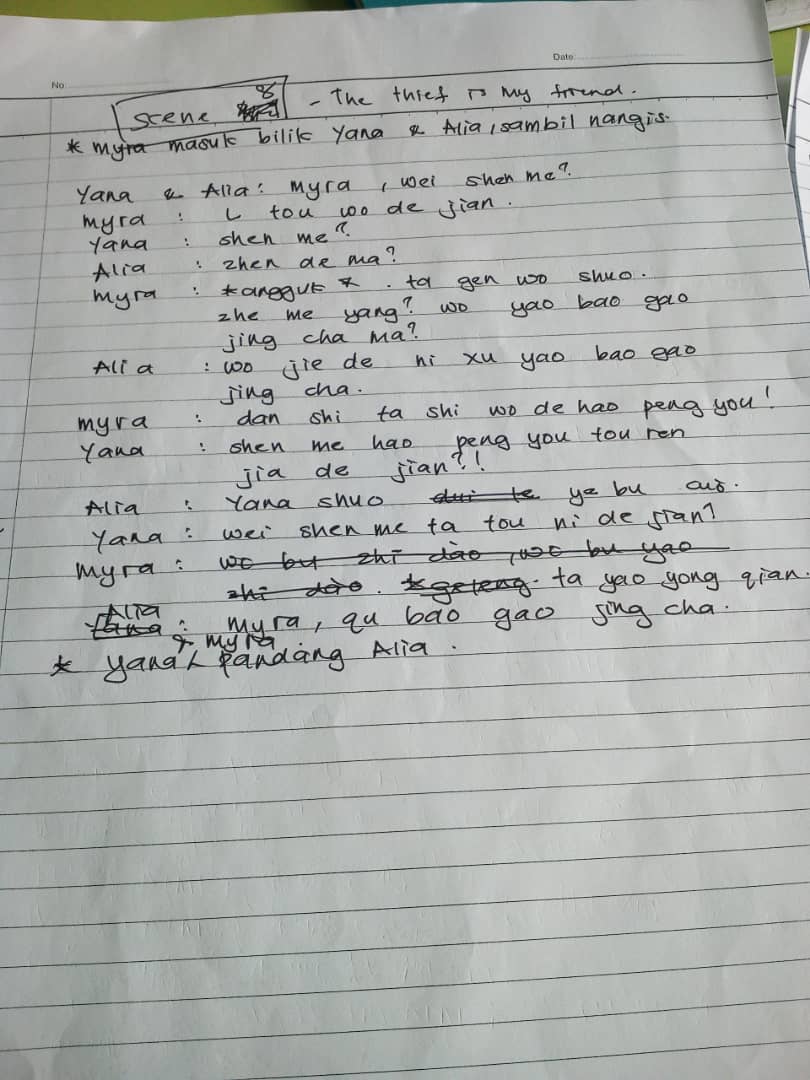 No:
Date:
Scene 8 - The thief is my friend.
* myra masuk bilik Yana & Alia, sambil nangis.
Yana & Alia: myra, wei shen me?
myra : L tou wo de jian.
Yana : shen me?
Alia : zhen de ma?
myra : *angguk*. ta gen wo shuo.
zhe me yang? wo yao bao gao
jing cha ma?
Alia : wo jie de ni xu yao bao gao
jing cha.
myra : dan shi ta shi wo de hao peng you!
Yana : shen me hao peng you tou ren
jia de jian?!
Alia : Yana shuo dui te ye bu cuo.
Yana : wei shen me ta tou ni de jian?
myra : wo bu zhī dào, wo bu yao
zhī dào. *geleng. ta yao yong qian.
Alia
Yana : myra, qu bao gao jing cha.
& myra
* Yana pandang Alia.